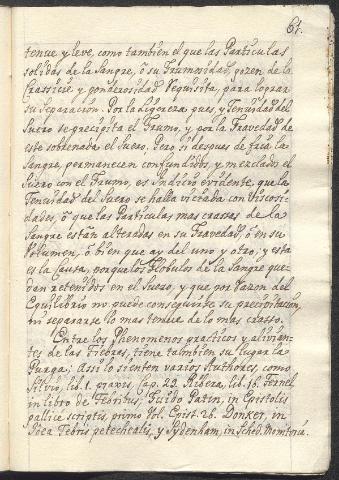 61.
tenue y leve, como tambien el que las Particulas
solidas de la Sangre, ô su Grummosidad, gozen de la
Crassicie y ponderosidad requisita, para lograr
su separacion. Por la ligereza pues, y Tenuidad del
Suero se precipita el Grumo, y por la Gravedad de
este sobrenada el Suero. Pero si despues de fria la
Sangre, permanecen confundidos, y mezclados el
Suero con el Grumo, es Indicio evidente, que la
Tenuidad del Suero se halla viciada con Viscosi-
dades, ô que las Particulas mas crassas de la
Sangre estàn alteradas en su Gravedad, ô en su
Volumen, ô bien que ay del uno y otro, y esta
es la Causa, porque los Globulos de la Sangre que-
dan retenidos en el Suero, y que por razon del
Equilibrio no puede conseguirse su precipitacion,
ni separarse lo mas tenue de lo mas crasso.
Entre los Phenomenos practicos y alivian-
tes de las Fiebres, tiene tambien su lugar la
Purga; Assi lo sienten varios Authores, como
Silvio, lib. 1. praxeos, cap. 29. Ribera, lib. 16. Fernel
in libro de Febribus, Guido Patin, in Epistolis
gallicè scriptis, primo Vol. Epist. 26. Donker, in
Idea Febris petechialis, y Sydenham, in Sched. Monitoria.